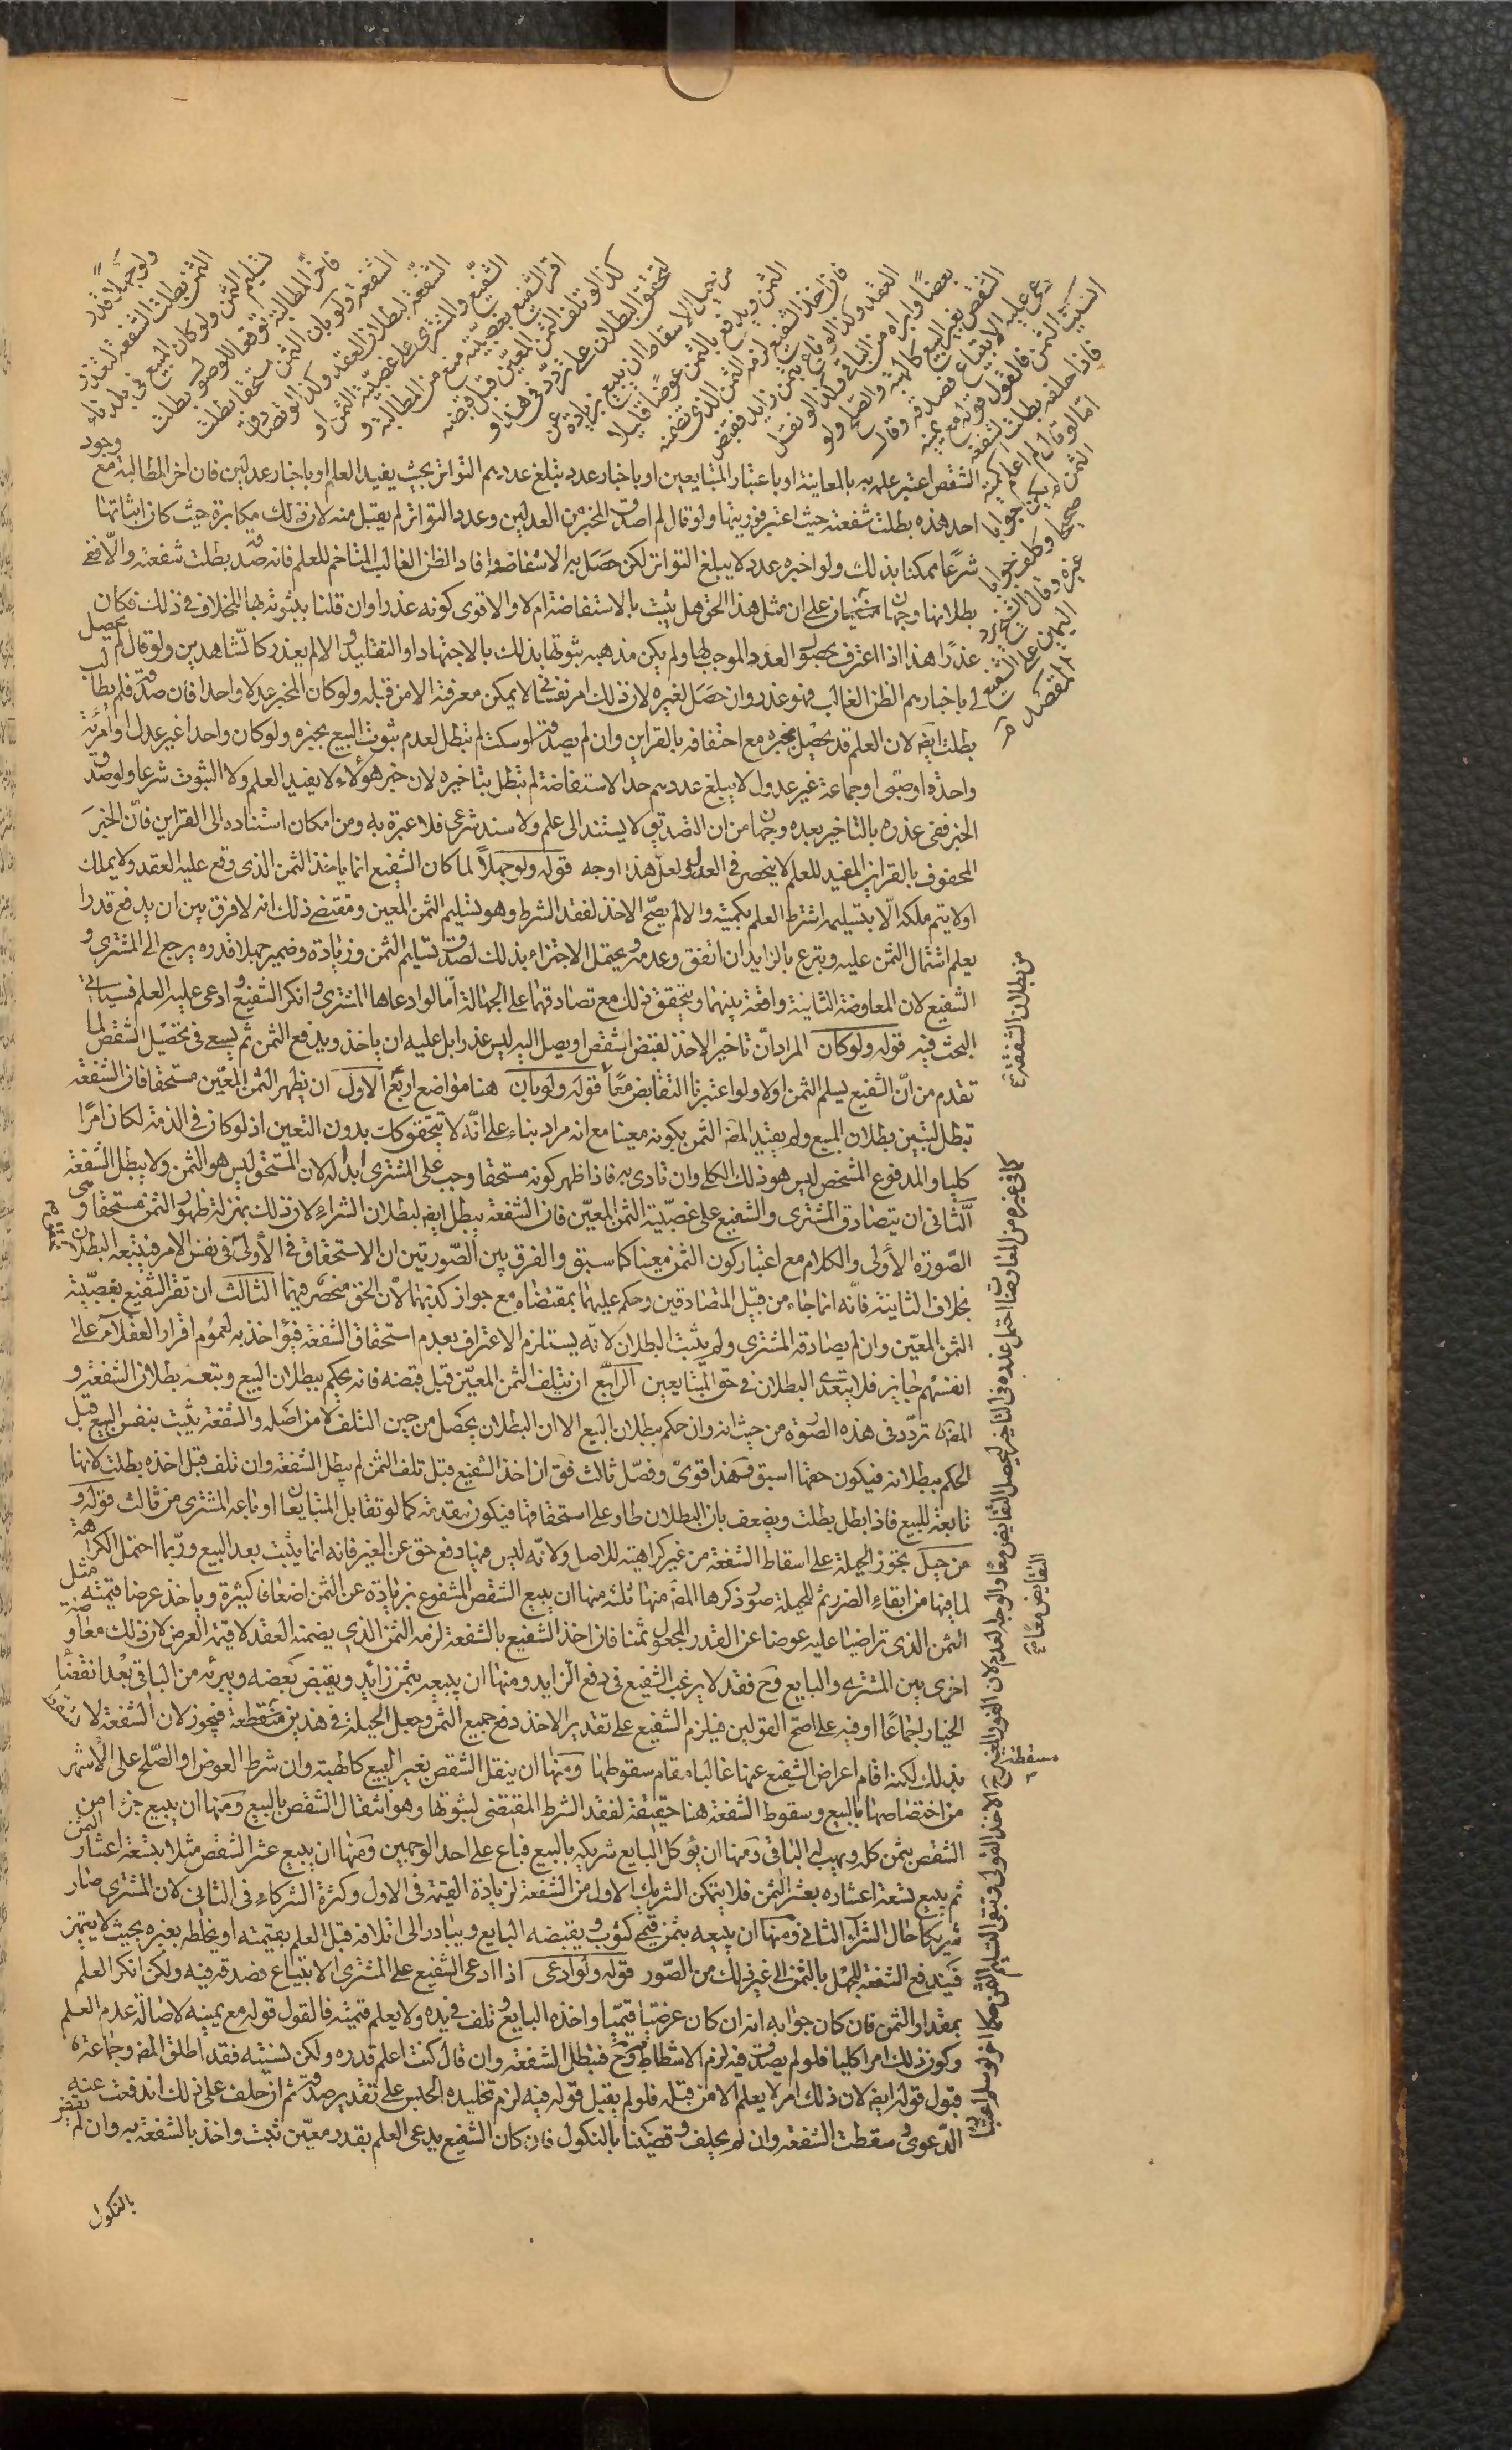 ولو جهلا قدر
الثمن بطلت الشفعة لتعذر
تسليم الثمن ولو كان المبيع في بلد ناء
فاخر المطالبة توقعا للوصول بطلت
الشفعة ولو بان الثمن مستحقا بطلت
الشفعة لبطلان العقد وكذا لو تصادق
الشفيع والمشتري على غصبية الثمن او
اقر الشفيع بغصبيته منع من المطالبة و
كذا لو تلف الثمن المعين قبل قبضه
لتحقق البطلان على تردد في هذا و
من حيل الاسقاط ان يبيع بزيادة عن
الثمن ويدفع بالثمن عوضا قليلا
فان اخذ الشفيع لزمه الثمن الذي تضمنه
العقد وكذا لو باع بثمن زايد فقبض
بعضا وابراه من الباقي وكذا لو نقل
الشقص بغير البيع كالهبة والصلح ولو
دعى عليه الابتياع فصدقه وقال
انسيت الثمن فالقول قوله مع يمينه
فاذا حلف بطلت الشفعة
اما لو قال لم اعلم كمية
الثمن لم يكن جوابا
صحيحا وكلف جوابا
غيره وقال الشيخ يرد
اليمين على الشفيع
المقصد
وجود
الشقص اعتبر علمه به بالمعاينة او باعتبار المتبايعين او باخبار عدد يبلغ عددهم التواتر بحيث يفيد العلم او باخبار عدلين فان اخر المطالبة مع
احد هذه بطلت شفعته حيث اعتبر فوريتها ولو قال لم اصدق المخبر من العدلين وعدد التواتر لم يقبل منه لان ذلك مكابرة حيث كان اثباتها
شرعا ممكنا بذلك ولو اخبره عدد لا يبلغ التواتر لكن حصل به الاستفاضة وافاد الظن الغالب المتاخم للعلم فانه صدقه بطلت شفعته والا ففي
بطلانها وجهان مبنيان على ان مثل هذا الحق هل يثبت بالاستفاضة ام لا والاقوى كونه عذرا وان قلنا بثبوته بها للخلاف في ذلك فكان
عذرا هذا اذا اعترف بحصول العدد الموجب لها ولم يكن مذهبه ثبوتها بذلك بالاجتهاد او التقليد والا لم يعذر كالشاهدين ولو قال لم يحصل
لي باخبارهم الظن الغالب فهو عذر وان حصل لغيره لان ذلك امر نفساني لا يمكن معرفته الا من قبله ولو كان المخبر عدلا واحدا فان صدقه فلم يطالب
بطلت ايضا لان العلم قد يحصل بخبره مع احتفافه بالقراين وان لم يصدقه او سكت لم تبطل لعدم ثبوت البيع بخبره ولو كان واحدا غير عدل او امرأة
واحدة او صبي او جماعة غير عدول لا يبلغ عددهم حد الاستفاضة لم تبطل بتاخيره لان خبر هؤلاء لا يفيد العلم ولا الثبوت شرعا ولو صدق
الخبر ففي عذره بالتاخير بعده وجهان من ان التصديق لا يستند الى علم ولا سند شرعي فلا عبرة به ومن امكان استناده الى القراين فان الخبر
المحفوف بالقراين المفيد للعلم لا ينحصر في العدل ولعل هذا اوجه قوله ولو جهلا لما كان الشفيع انما ياخذ الثمن الذي وقع عليه العقد ولا يملك
او لا يتم ملكه الا بتسليمه اشترط العلم بكميته والا لم يصح الاخذ لفقد الشرط وهو تسليم الثمن المعين ومقتضى ذلك انه لا فرق بين ان يدفع قدرا
يعلم اشتمال الثمن عليه ويتبرع بالزايد ان اتفق وعدمه ويحتمل الاجتزاء بذلك لصدق تسليم الثمن وزيادة وضمير جهلا قدره يرجع الى المشتري و
الشفيع لان المعاوضة الثانية واقعة بينهما ويتحقق ذلك مع تصادقهما على الجهالة اما لو ادعاها المشتري وانكر الشفيع وادعى عليه العلم فسياتي
البحث فيه قوله ولو كان المراد ان تاخير الاخذ لقبض الشقص او يصل اليه ليس عذرا بل عليه ان ياخذ ويدفع الثمن ثم يسعى في تحصيل الشقص لما
تقدم من ان الشفيع يسلم الثمن اولا ولو اعتبرنا التقابض معا قوله ولو بان هنا مواضع اربع الاول ان يظهر الثمن المعين مستحقا فان الشفعة
تبطل لتبين بطلان المبيع ولم يقيد المص الثمن بكونه معينا مع انه مراد بناء على انه لا يتحقق كذلك بدون التعين اذ لو كان في الذمة لكان امرا
كليا والمدفوع المشخص ليس هو ذلك الكلي وان تادى به فاذا ظهر كونه مستحقا وجب على المشتري ابداله لان المستحق ليس هو الثمن ولا يبطل الشفعة
الثاني ان يتصادق المشتري والشفيع على غصبية الثمن المعين فان الشفعة يبطل ايضا لبطلان الشراء لان ذلك بمنزلة ظهور الثمن مستحقا وهي
الصورة الأولى والكلام مع اعتبار كون الثمن معينا كما سبق والفرق بين الصورتين ان الاستحقاق في الأولى في نفس الامر فيتبعه البطلان
بخلاف الثانية فانه انما جاء من قبل المتصادقين وحكم عليهما بمقتضاه مع جواز كذبهما لان الحق منحصر فيهما الثالث ان تقر الشفيع بغصبية
الثمن المعين وان لم يصادقه المشتري ولم يثبت البطلان لانه يستلزم الاعتراف بعدم استحقاق الشفعة فيؤاخذ به لعموم اقرار العقلاء على
انفسهم جايز فلا يتعدى البطلان في حق المتبايعين الرابع ان يتلف الثمن المعين قبل قبضه فانه يحكم ببطلان البيع وتتبعه بطلان الشفعة و
المص تردد في هذه الصورة من حيث انه وان حكم ببطلان البيع الا ان البطلان يحصل من حين التلف لا من اصله والشفعة يثبت بنفس البيع قبل
الحكم ببطلانه فيكون حقها اسبق وهذا قوي وفصل ثالث فق ان اخذ الشفيع قبل تلف الثمن لم يبطل الشفعة وان تلف قبل اخذه بطلت لانها
تابعة للبيع فاذا بطل بطلت ويضعف بان البطلان طار على استحقاقها فيكون متقدمة كما لو تقايل المتبايعان او باعه المشتري من ثالث قوله و
من حيل يجوز الحيلة على اسقاط الشفعة من غير كراهية للاصل ولانه ليس فيها دفع حق عن الغير فانه انما يثبت بعد البيع وربما احتمل الكراهة
لما فيها من ابقاء الضرر ثم للحيلة صور ذكرها المص منها ثلثه منها ان يبيع الشقص المشفوع بزيادة عن الثمن اضعافا كثيرة وياخذ عرضا قيمته مثل
الثمن الذي تراضيا عليه عوضا عن القدر المجعول ثمنا فان اخذ الشفيع بالشفعة لزمه الثمن الذي يضمنه العقد لا قيمة العرض لان ذلك معاوضة
اخرى بين المشتري والبايع وح فقد لا يرغب الشفيع في دفع الزايد ومنها ان يبيعه بثمن زائد ويقبض بعضه ويبرئه من الباقي بعد انقضاء
الخيار اجماعا او فيه على اصح القولين فيلزم الشفيع على تقدير الاخذ دفع جميع الثمن وجعل الحيلة في هذين مسقطة فيجوز لان الشفعة لا تسقط
بذلك لكنه اقام اعراض الشفيع عنها غالبا مقام سقوطها ومنها ان ينقل الشقص بغير البيع كالهبة وان شرط العوض او الصلح على الاشهر
من اختصاصها بالبيع وسقوط الشفعة هنا حقيقة لفقد الشرط المقتضى لثبوتها وهو انتقال الشقص بالبيع ومنها ان يبيع جزءا من
الشقص بثمن كله ويهب له الباقي ومنها ان يوكل البايع شريكه بالبيع فباع على احد الوجهين ومنها ان يبيع عشر الشقص مثلا بتسعة اعشار الثمن
ثم يبيع تسعة اعشاره بعشر الثمن فلا يتمكن الشريك الاول من الشفعة لزيادة القيمة في الاول وكثرة الشركاء في الثاني لان المشتري صار
شريكا حال الشراء الثاني ومنها ان يبيعه بثمن قيمي كثوب ويقبضه البايع ويبادر الى اتلافه قبل العلم بقيمته او يخلطه بغيره بحيث لا يتميز
فيندفع الشفعة للجهل بالثمن الى غير ذلك من الصور قوله ولو ادعى اذا ادعى الشفيع على المشتري الابتياع فصدقه فيه ولكن انكر العلم
بمقدار الثمن فان كان جوابه انه ان كان عرضيا قيميا واخذه البايع وتلف في يده ولا يعلم قيمته فالقول قوله مع يمينه لاصالة عدم العلم
وكون ذلك امرا كليا فلو لم يصدق فيه لزم الاشطاط وح فتبطل الشفعة وان قال كنت اعلم قدره ولكن نسيته فقد اطلق المص وجماعة
قبول قوله ايضا لان ذلك امر لا يعلم الا من قبله فلو لم يقبل قوله فيه لزم تخليده الحبس على تقدير صدقه ثم ان حلف على ذلك اندفعت عنه
الدعوى وسقطت الشفعة وان لم يحلف وقضينا بالنكول فان كان الشفيع يدعى العلم بقدر معين ثبت واخذ بالشفعة به وان لم يقض
بالنكول
من بطلان الشفعة
كما في غيره من المعاوضات احتمل عنده في التاخير ليحصل التقابض معا والوجه العدم لان الفور المعتبر
التقابض معا
مسقطة